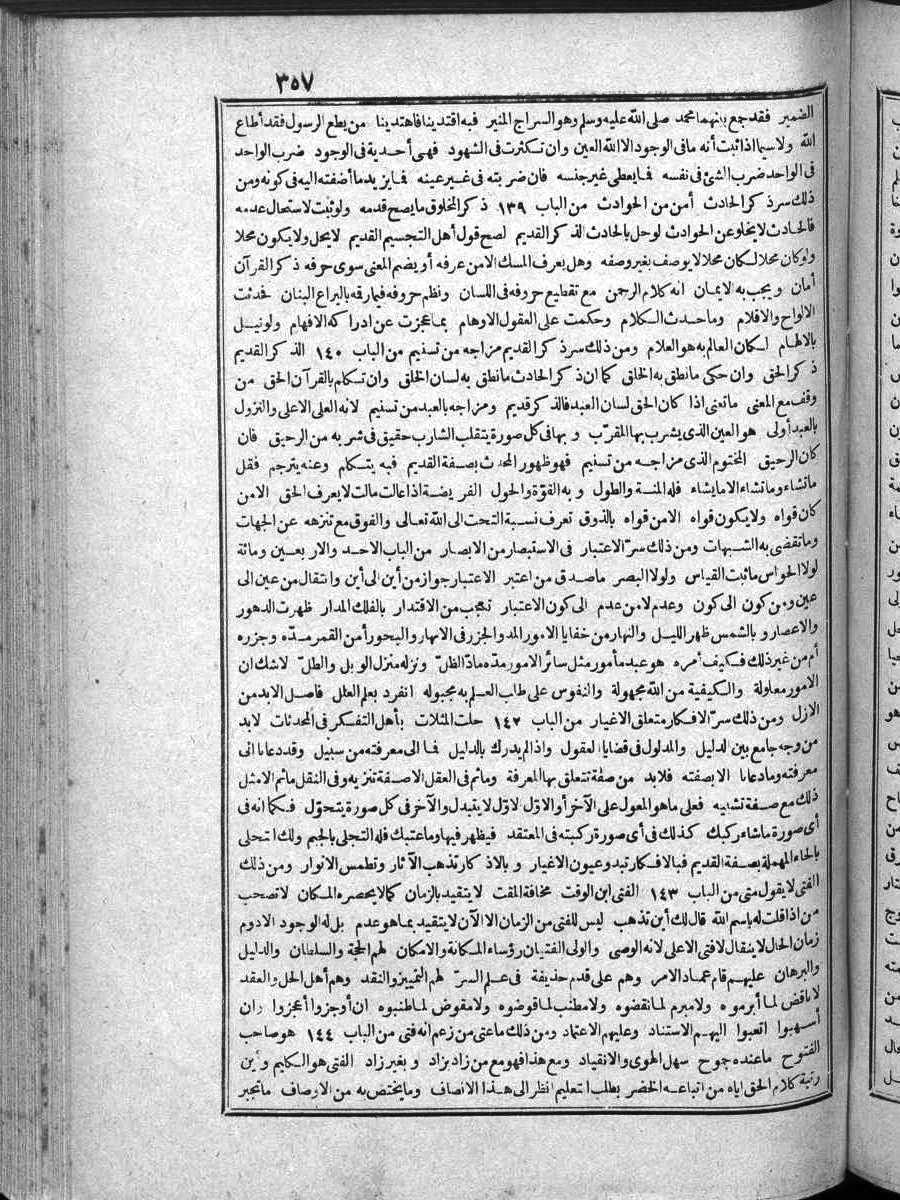 ٣٥٧
الضمير فقد جمع بينهما محمد صلى الله عليه وسلم وهو السراج المنير فبه اقتدينا فاهتدينا من يطع الرسول فقد أطاع
الله ولا سيما اذا ثبت أنه ما فى الوجود الا الله العين وان تكثرت فى الشهود فهى أحدية فى الوجود ضرب الواحد
فى الواحد ضرب الشئ فى نفسه فما يعطى غير جنسه فان ضربته فى غير عينه فما يزيد ما أضفته اليه فى كونه ومن
ذلك سر ذكر الحادث أمن من الحوادث من الباب ١٣٩ ذكر المخلوق ما يصح قدمه ولو ثبت لاستحال عدمه
فالحادث لا يخلو عن الحوادث لو حل بالحادث الذكر القديم لصح قول أهل التجسيم القديم لا يحل ولا يكون محلا
ولو كان محلا لكان محلا لا يوصف بغير وصفه وهل يعرف المسك الا من عرفه أو يضم المعنى سوى حرفه ذكر القرآن
أمان ويجب به الايمان انه كلام الرحمن مع تقطيع حروفه فى اللسان ونظم حروفه فيما رقه باليراع البنان فحدثت
الالواح والاقلام وما حدث الكلام وحكمت على العقول الاوهام بما عجزت عن ادراكه الافهام ولو نيل
بالالهام لكان العالم به هو العلام ومن ذلك سر ذكر القديم مزاجه من تسنيم من الباب ١٤٠ الذكر القديم
ذكر الحق وان حكى ما نطق به الخلق كما ان ذكر الحادث ما نطق به لسان الخلق وان تكلم بالقرآن الحق من
وقف مع المعنى ما تعنى اذا كان الحق لسان العبد فالذكر قديم ومزاجه بالعبد من تسنيم لانه العلى الاعلى والنزول
بالعبد أولى هو العين الذى يشرب بها المقرب وبها فى كل صورة يتقلب الشارب حقيق فى شربه من الرحيق فان
كان الرحيق المختوم الذى مزاجه من تسنيم فهو ظهور المحدث بصفة القديم فبه يتكلم وعنه يترجم فقل
ما تشاء وما تشاء الا ما يشاء فله المنة والطول وبه القوة والحول الفريضة اذا عالت مالت لا يعرف الحق الا من
كان قواه ولا يكون قواه الا من قواه بالذوق تعرف نسبة التحت الى الله تعالى والفوق مع تنزهه عن الجهات
وما تقضى به الشبهات ومن ذلك سر الاعتبار فى الاستبصار من الابصار من الباب الاحد والاربعين ومائة
لولا الحواس ما ثبت القياس ولولا البصر ما صدق من اعتبر الاعتبار جواز من أين الى أين وانتقال من عين الى
عين ومن كون الى كون وعدم لا من عدم الى كون الاعتبار تعجب من الاقتدار بالفلك المدار ظهرت الدهور
والاعصار وبالشمس ظهر الليل والنهار من خفايا الامور المد والجزر فى الانهار والبحور أمن القمر مده وجزره
أم من غير ذلك فكيف أمره هو عبد مأمور مثل سائر الامور مده ماد الظل ونزله منزل الوبل والطل لا شك ان
الامور معلولة والكيفية من الله مجهولة والنفوس على طلب العلم به مجبولة انفرد بعلم العلل فاصل الابد من
الازل ومن ذلك سر الافكار متعلق الاغيار من الباب ١٤٢ حلت المثلات بأهل التفكر فى المحدثات لا بد
من وجه جامع بين الدليل والمدلول فى قضايا العقول واذا لم يدرك بالدليل فما الى معرفته من سبيل وقد دعانا الى
معرفته وما دعانا الا بصفته فلا بد من صفة تتعلق بها المعرفة وما ثم فى العقل الا صفة تنزيه وفى النقل ما ثم الا مثل
ذلك مع صفة تشبيه فعلى ما هو المعول على الآخر أو الاول لاول لا يتبدل والآخر فى كل صورة يتحول فكما انه فى
أى صورة ما شاء ركبك كذلك فى أى صورة ركبته فى المعتقد فيظهر فيها وما عتبك فله التجلى بالجيم ولك التحلى
بالحاء المهملة بصفة القديم فبالافكار تبدو عيون الاغيار وبالاذكار تذهب الآثار وتطمس الانوار ومن ذلك
الفتى لا يقول متى من الباب ١٤٣ الفتى ابن الوقت مخافة المقت لا يتقيد بالزمان كما لا يحصره المكان لا تصحب
من اذا قلت له باسم الله قال لك أين نذهب ليس للفتى من الزمان الا الآن لا يتقيد بما هو عدم بل له الوجود الادوم
زمان الحال لا ينقال لا فتى الا على لانه الوصى والولى الفتيان رؤساء المكانة والامكان لهم الحجة والسلطان والدليل
والبرهان عليهم قام عماد الامر وهم على قدم حذيفة فى علم السر لهم التمييز والنقد وهم أهل الحل والعقد
لا ناقض لما أبرموه ولا مبرم لما نقضوه ولا مطنب لما قوضوه ولا مقوض لما طنبوه ان أوجزوا أعجزوا وان
أسهبوا اتعبوا اليهم الاستناد وعليهم الاعتماد ومن ذلك ما عتى من زعم انه فتى من الباب ١٤٤ هو صاحب
الفتوح ما عنده جموح سهل الهوى والانقياد ومع هذا فهو مع من زاد بزاد وبغير زاد الفتى هو الكليم وأين
رتبة كلام الحق اياه من اتباعه الخضر بطلب التعليم انظر الى هذا الانصاف وما يختص به من الاوصاف ما تجبر